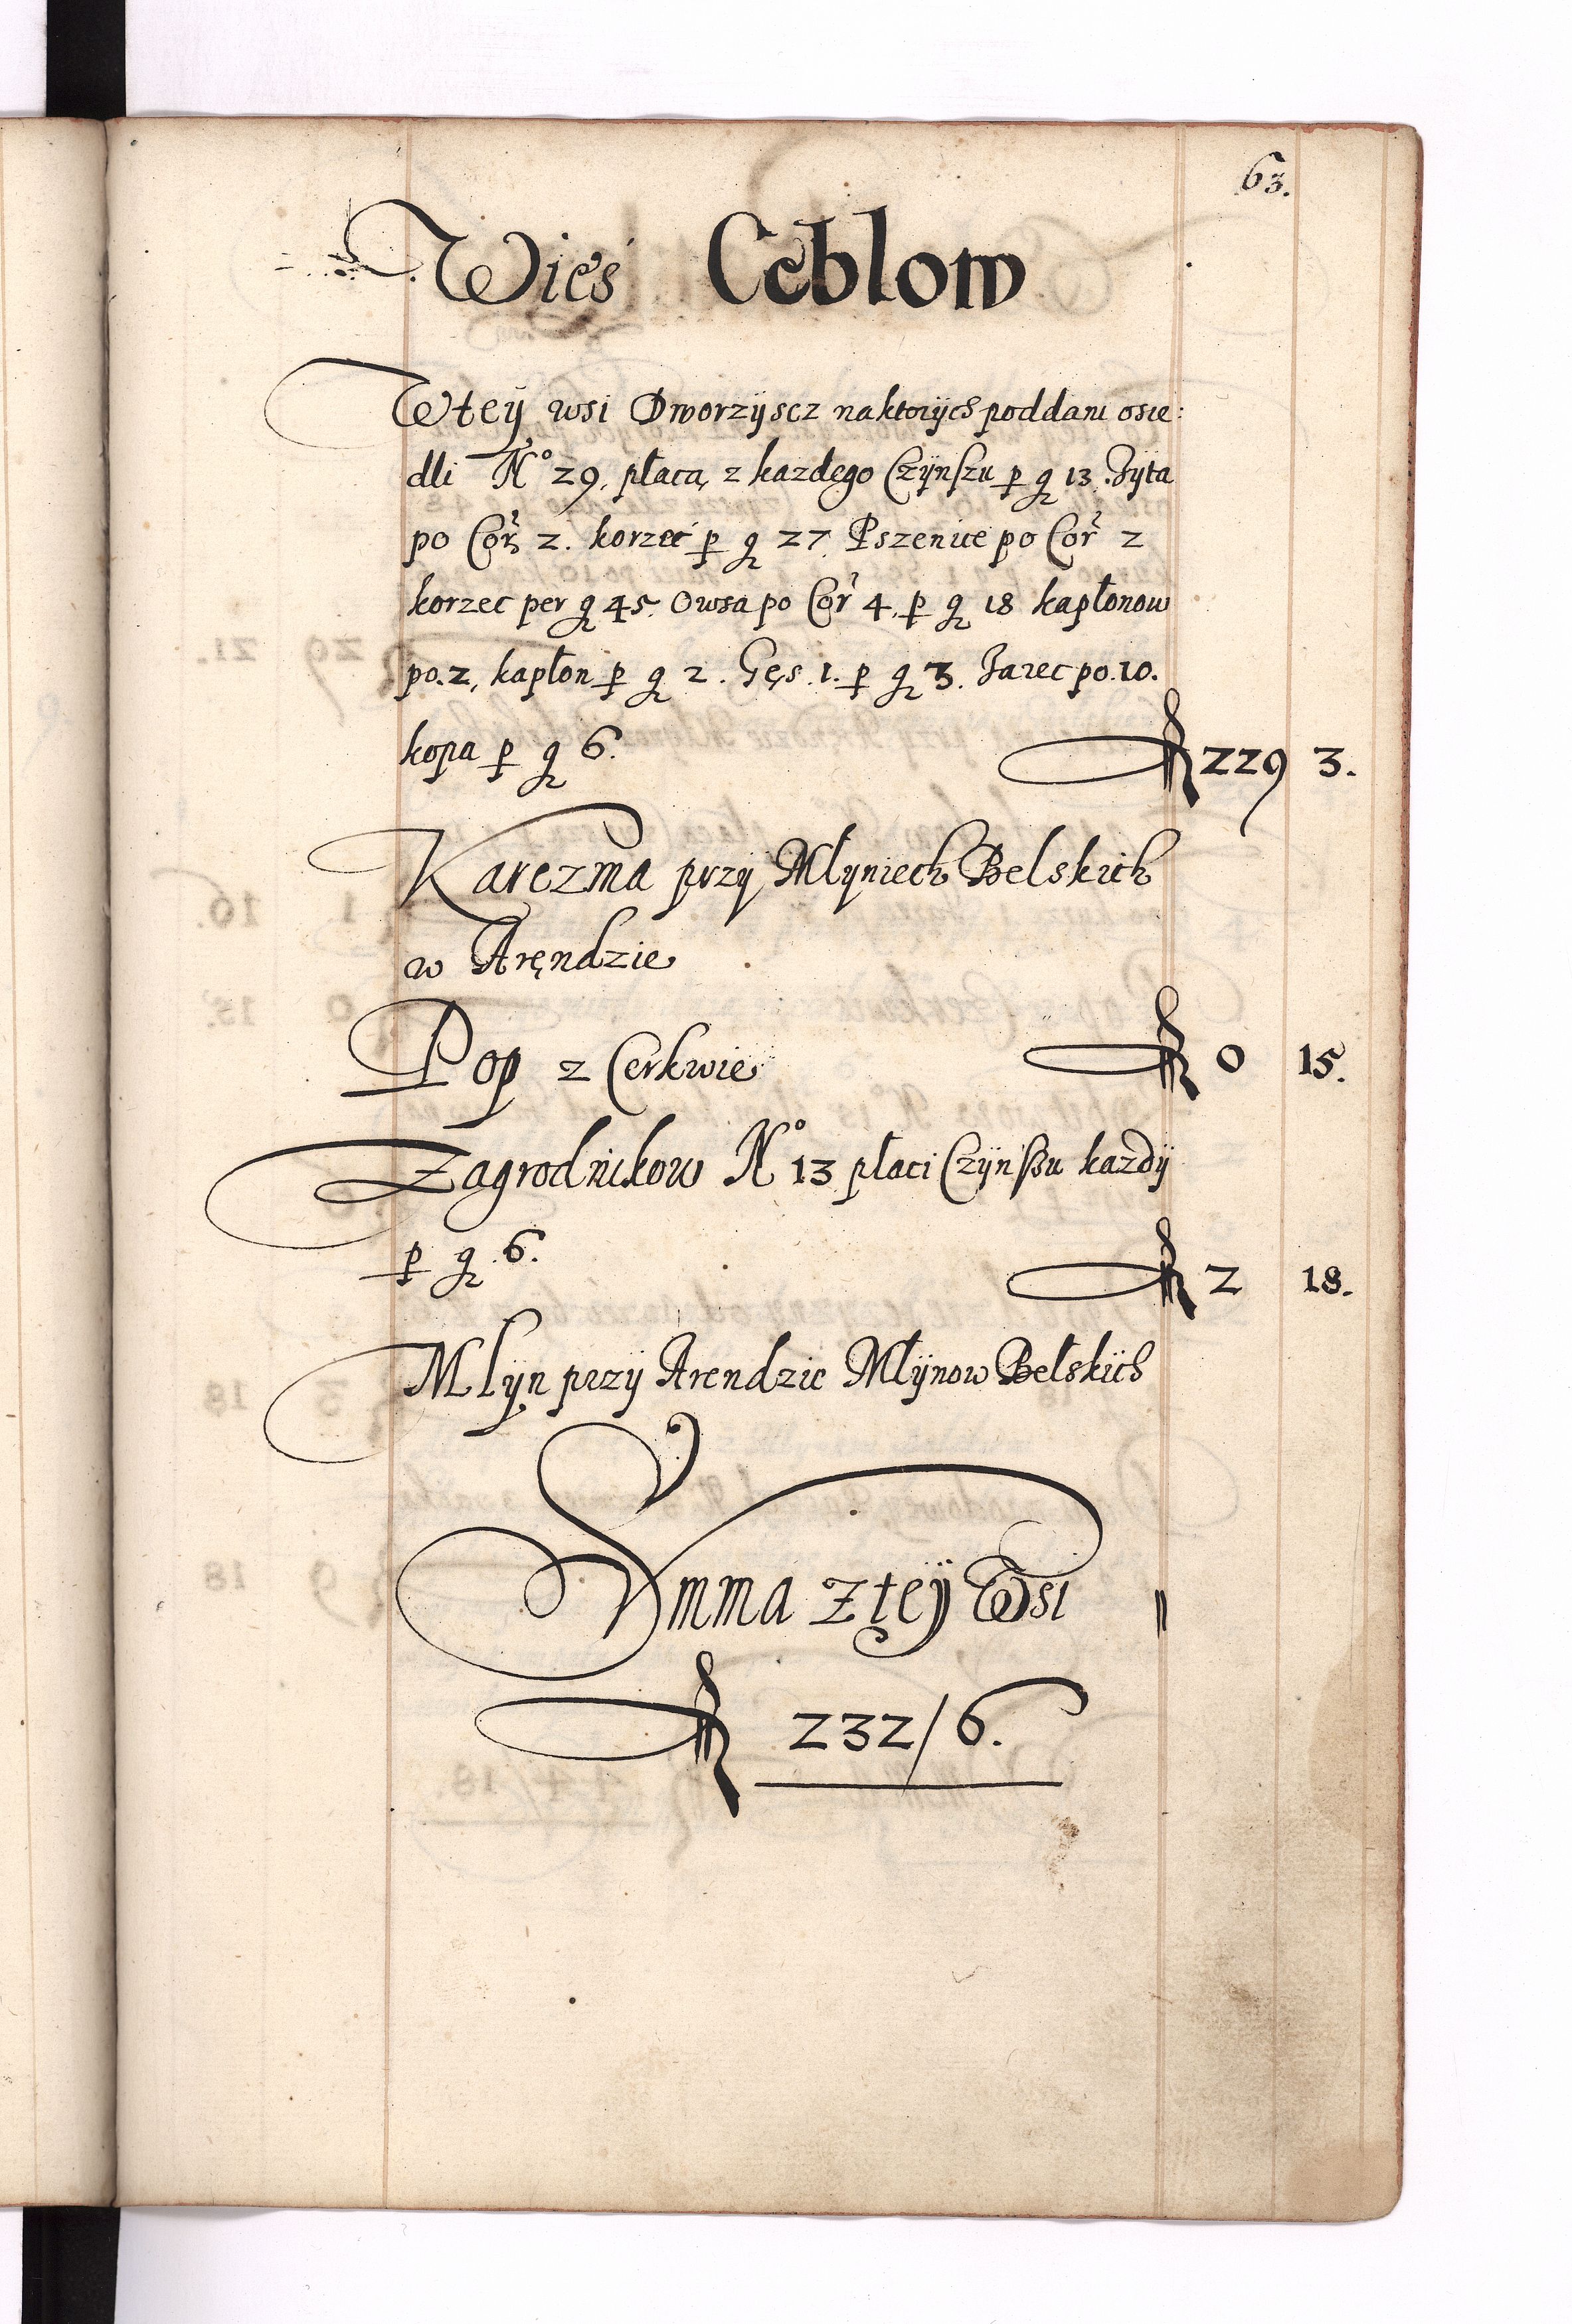 63.
Wieś Ceblow
Wteÿ wsi Dworzÿscz naktorÿch poddani osie:
dli N° 29. płacą z kazdego Czÿnszu p g 13. Zÿta
po Cor 2. korzec p g 27. Pszenice po Cor 2
korzec per g 45. Owsa po Cor 4. p g 18 kapłonow
po.2, kapłon p g 2. Gęs .1. p g 3. Jaiec po.10.
kopa p g 6. fl 229 3.
Karczma przÿ Młyniech Belskich
w Aręndzie
Pop z Cerkwie fl 0 15.
Zagrodnikow N° 13 płaci Czÿnszu kazdÿ
p g .6. fl 2 18.
Mlÿn przÿ Arendzie Młÿnow Bełskich
Summa z teÿ Wsi
fl 232/6.